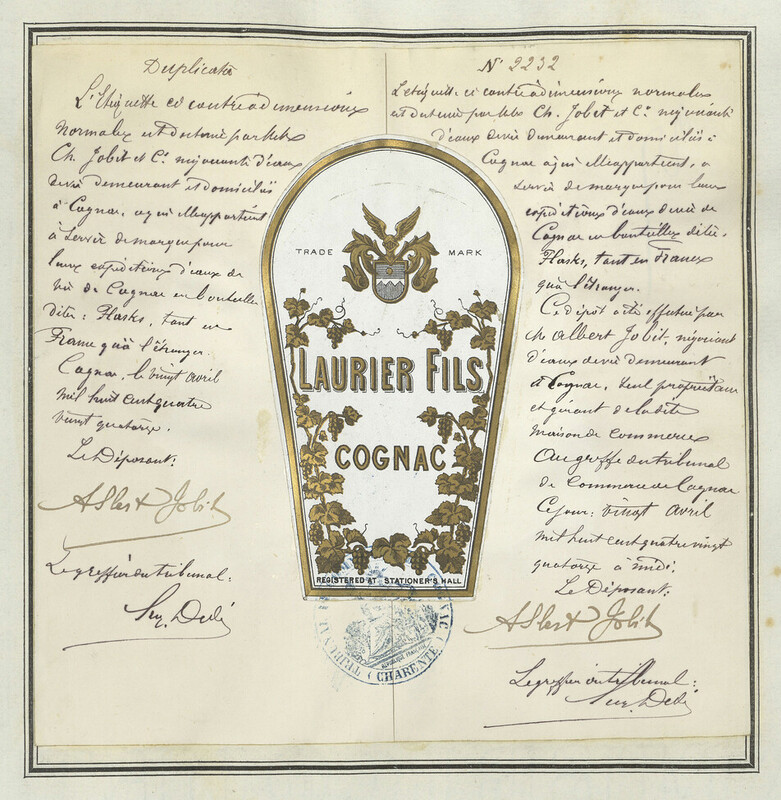 Duplicata
L'Etiquette ci contre à dimensions
normales est destinée par
Ch. Jobit et Cie négociants d'eaux
de vie demeurant et domiciliés
à Cognac, à qui elle appartient
à servir de marque pour
leurs expéditions d'eaux de
vie de Cognac en bouteilles
dites: Flasks, tant en
France qu'à l'étranger.
Cognac, le vingt avril
mil huit cent quatre
vingt quatorze.
Le Déposant:
Albert Jobit
Le greffier du tribunal:
TRADE MARK
LAURIER FILS
COGNAC
REGISTERED AT STATIONER'S HALL
TRIBUNAL
(CHARENTE)
N° 2232
L'etiquette ci contre à dimensions normales
est destinée par Ch. Jobit et Cie négociants
d'eaux de vie demeurant et domiciliés à
Cognac à qui elle appartient, a
servir de marque pour leurs
expéditions d'eaux de vie de
Cognac en bouteilles dites:
Flasks, tant en France
qu'à l'étranger.
Ce dépôt a été effectué par
Albert Jobit, négociant
d'eaux de vie demeurant
à Cognac, seul propriétaire
et gérant de la dite
maison de commerce
Au greffe du tribunal
de Commerce de Cognac
Ce jour: vingt avril
mil huit cent quatre vingt
quatorze à midi:
Le Déposant:
Albert Jobit
Le greffier du tribunal: